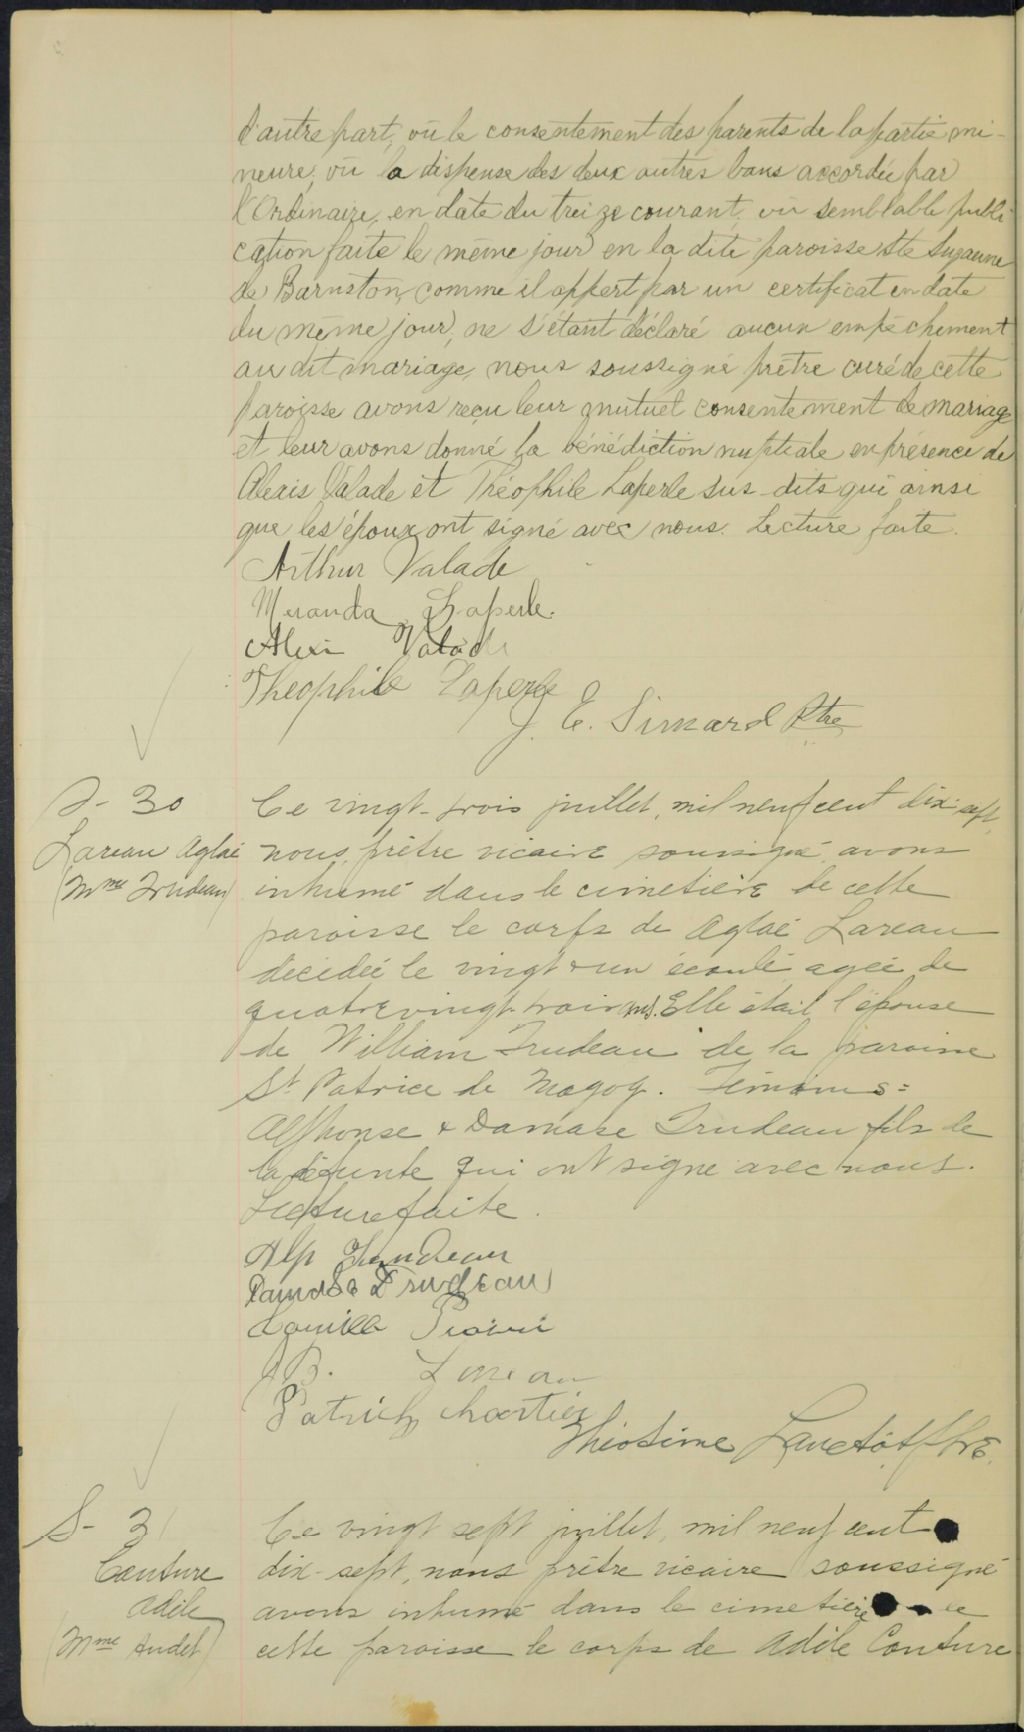 d'autre part, vu le consentement des parents de la partie mi-
neure, vu la dispense des deux autres bans accordée par
l'Ordinaire, en date du treize courant, vu semblable publi-
cation faite le même jour en la dite paroisse Ste Suzanne
de Barnston, comme il appert par un certificat en date
du même jour, ne s'étant déclaré aucun empêchement
au dit mariage, nous soussigné prêtre curé de cette
paroisse avons reçu leur mutuel consentement de mariage
et leur avons donné la bénédiction nuptiale en présence de
Alexis Valade et Théophile Laperle sus-dits qui ainsi
que les époux ont signé avec nous. Lecture faite.
Arthur Valade
Meranda Laperle.
Alexi Valade
Theophile Laperle
J. E. Simard Ptre
S- 30
Lareau Aglaé
(Mme Trudeau)
Ce vingt-trois juillet, mil neuf cent dix-sept,
nous, prêtre vicaire soussigné, avons
inhumé dans le cimetière de cette
paroisse le corps de Aglaé Lareau
décédée le vingt & un écoulé agée de
quatrevingt-trois ans. Elle était l'épouse
de William Trudeau de la paroisse
St Patrice de Magog. Témoins:
Alphonse & Damase Trudeau fils de
la défunte qui ont signé avec nous.
Lecture faite.
Alp Trudeau
Damase Trudeau
Camille
J B. Lareau
Patrick Chartier
Théotime Lanctôt Ptre.
S- 31
Couture
Adèle
(Mme Audet)
Ce vingt sept juillet, mil neuf cent
dix-sept, nous prêtre vicaire soussigné
avons inhumé dans le cimetière de
cette paroisse le corps de Adèle Couture